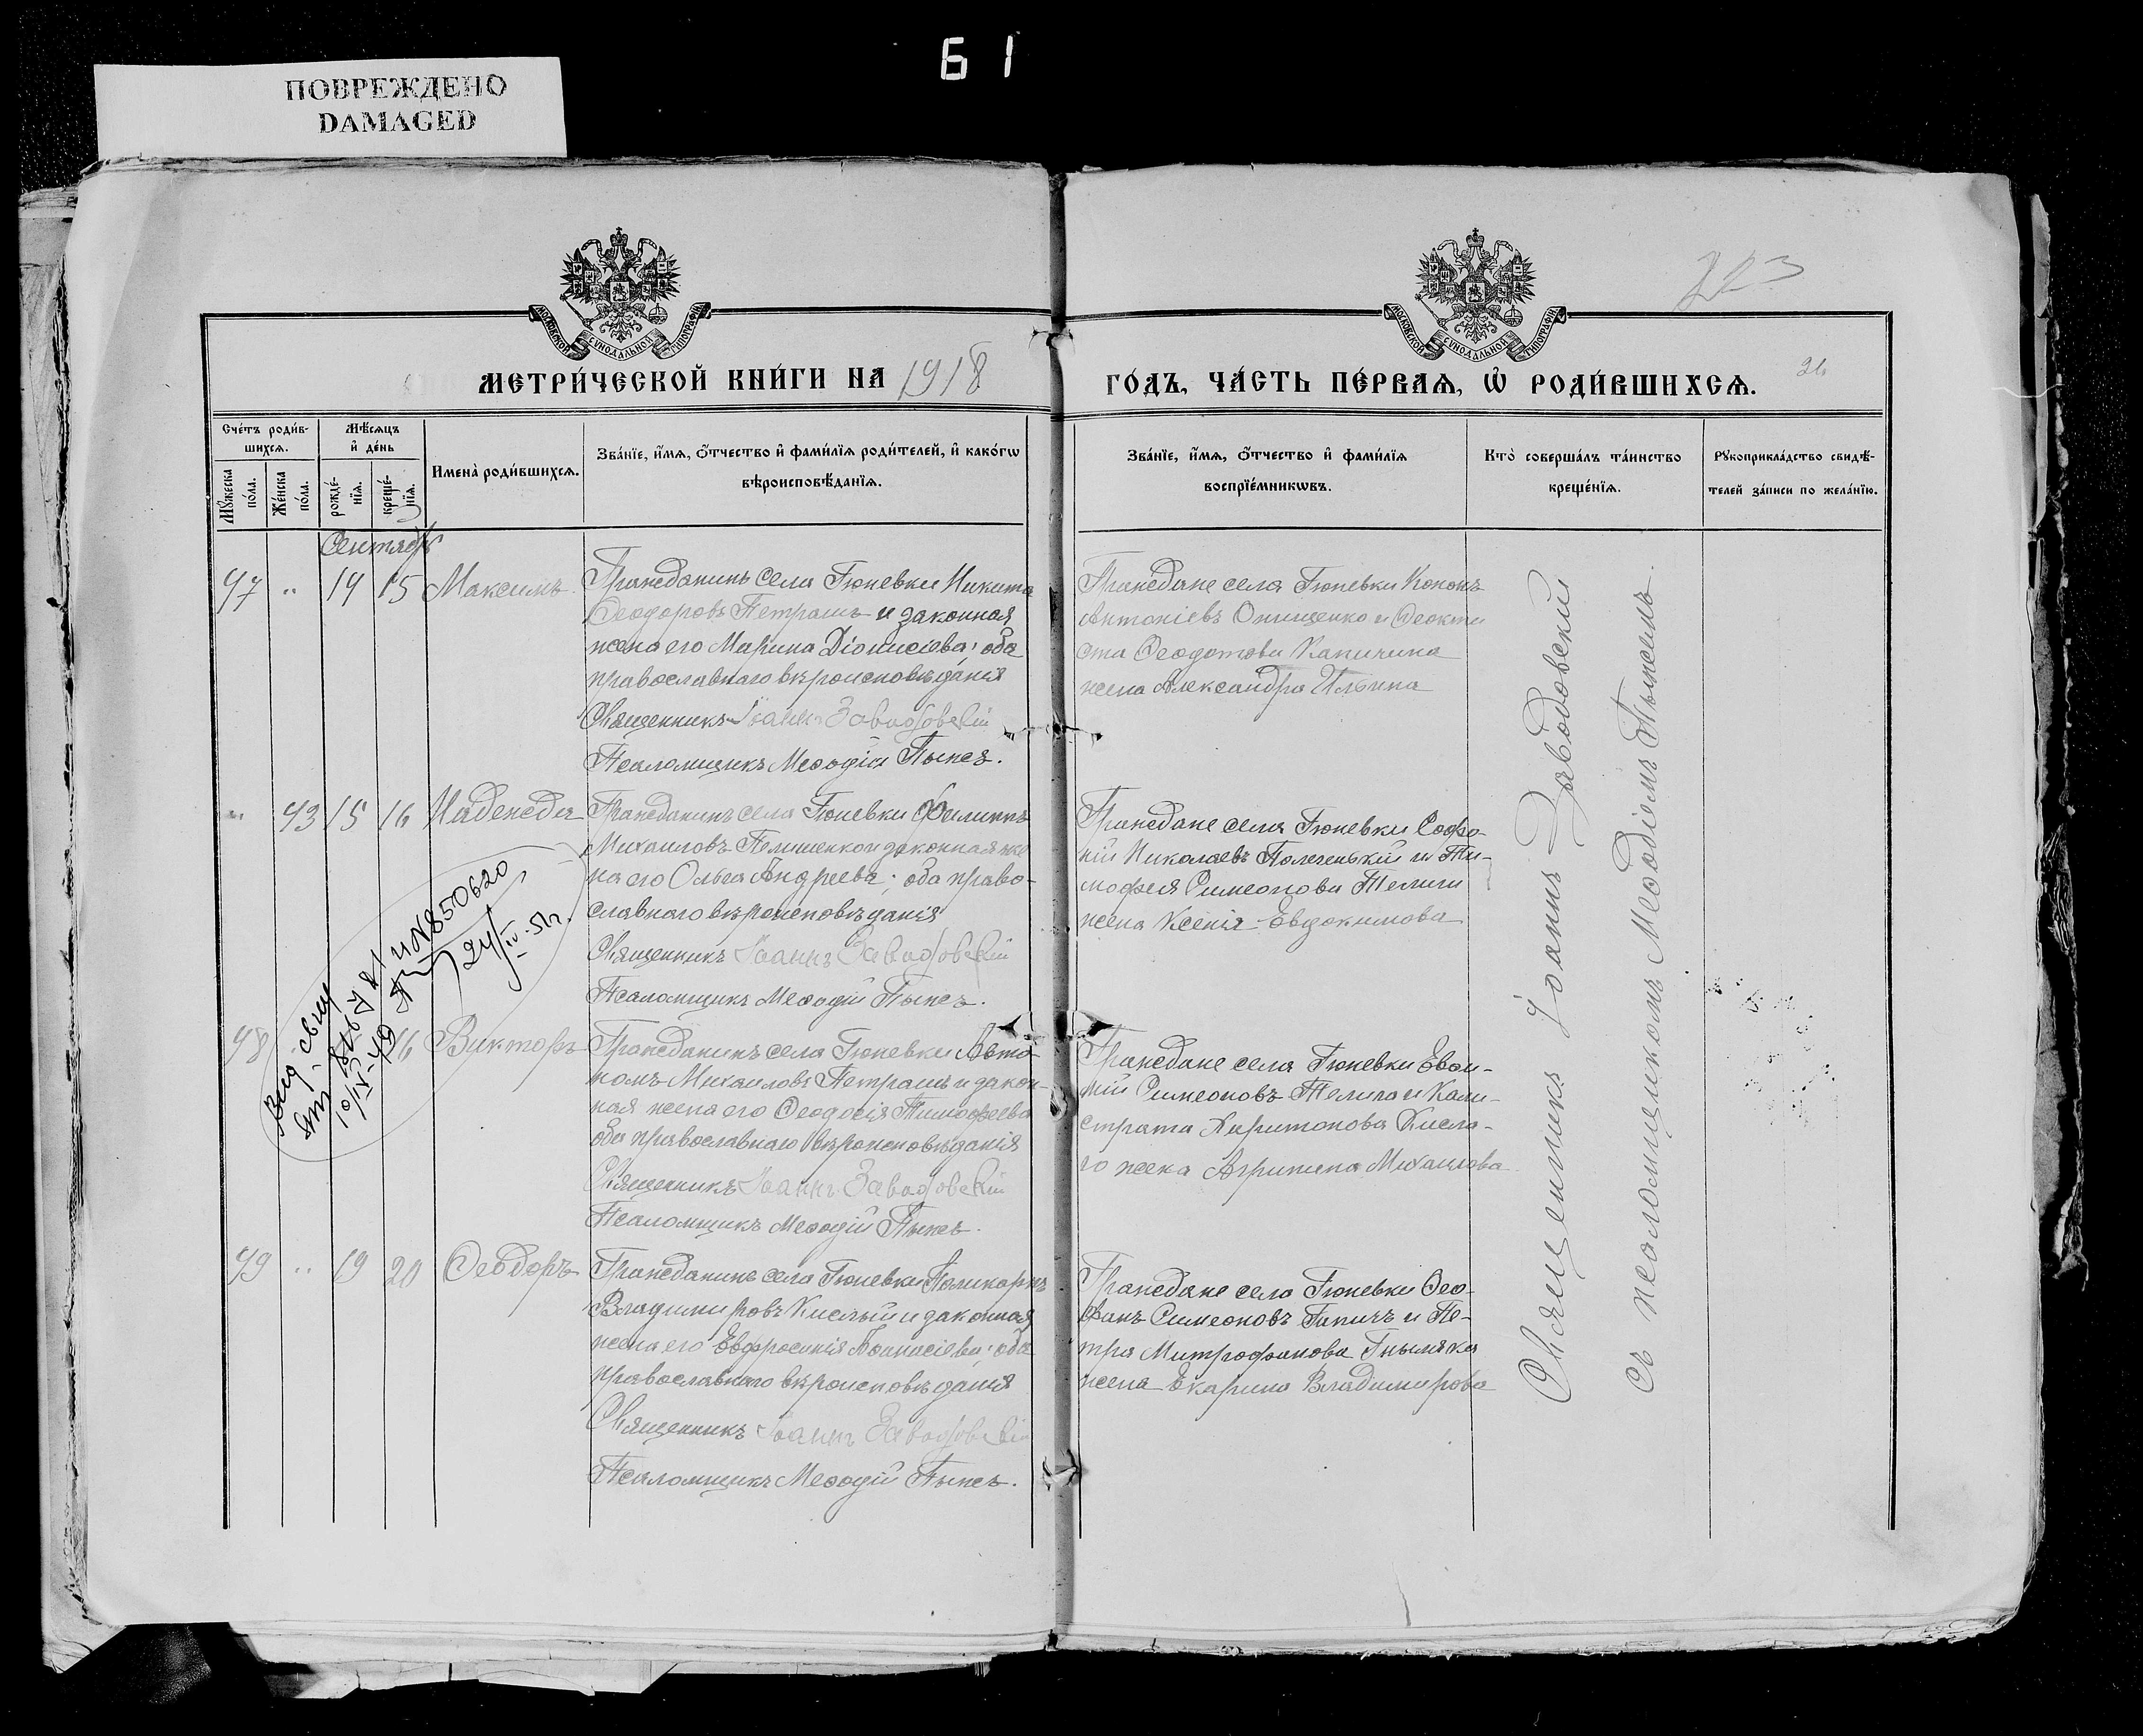 Б 1
ПОВРЕЖДЕНО
DAMAGED
223
МОСКОВСКОЙ СУНОДАЛЬНОЙ ТИПОГРАФИИ
МОСКОВСКОЙ СУНОДАЛЬНОЙ ТИПОГРАФИИ
МЕТРИ́ЧЕСКОЙ КНИ́ГИ НА 1918
ГО́ДЪ, ЧА́СТЬ ПЕ́РВАѦ, Ѡ҆ РОДИ́ВШИХСѦ.
26
Сче́тъ роди́в-
шихсѧ.
Мѣ́сѧцъ
и҆ де́нь
Мꙋ́жеска
по́ла.
Же́нска
по́ла.
рожде́-
нїѧ.
креще́-
нїѧ.
Имена̀ роди́вшихсѧ.
Зва́нїе, и҆́мѧ, ѻ҆́тчество и҆ фами́лїѧ роди́телей, и҆ како́гѡ
вѣроисповѣ́данїѧ.
Зва́нїе, и҆́мѧ, ѻ҆́тчество и҆ фами́лїѧ
воспрїе́мникѡвъ.
Кто̀ соверша́лъ та́инство
креще́нїѧ.
Рꙋкоприкла́дство свидѣ́-
телей за́писи по жела́нїю.
Сентябрь
47 " 14 15 Максимъ
Гражданинъ села Гюневки Никита
Ѳеодоровъ Петрашъ и законная
жена его Марина Діонисіева; оба
православнаго вѣроисповѣданія
Священникъ Іоаннъ Заводовскій
Псаломщикъ Меѳодій Пыжъ.
Граждане села Гюневки Кононъ
Антоніевъ Онищенко и Ѳеокти
ста Ѳеодотова Капичина
жена Александра Ильина
" 43 15 16 Надежда
Гражданинъ села Гюневки Филиппъ
Михаиловъ Пелишенко и законная же
на его Ольга Андреева; оба право-
славнаго вѣроисповѣданія
Священникъ Іоаннъ Заводовскій
Псаломщикъ Меѳодій Пыжъ.
Граждане села Гюневки Софро-
ній Николаевъ Полеченькій и Ти-
моѳея Симеонова Телиги
жена Ксенія Евдокимова
24/IV-51г.
48 16 Викторъ
Гражданинъ села Гюневки Авто-
номъ Михаиловъ Петрашъ и закон-
ная жена его Ѳеодосія Тимоѳеева
оба православнаго вѣроисповѣданія
Священникъ Іоаннъ Заводовскій
Псаломщикъ Меѳодій Пыжъ.
Граждане села Гюневки Евѳи-
мій Симеоновъ Телига и Кали-
страта Харитонова Кисла-
го жена Агрипина Михаилова
49 " 19 20 Ѳеодоръ
Гражданинъ села Гюневки Поликарпъ
Владимировъ Кислый и законная
жена его Евфросинія Аѳанасіева; оба
православнаго вѣроисповѣданія
Священникъ Іоаннъ Заводовскій
Псаломщикъ Меѳодій Пыжъ.
Граждане села Гюневки Ѳео-
фанъ Симеоновъ Гапичъ и Пе-
тра Митрофанова Гныляка
жена Екарина Владимирова
Священникъ Іоаннъ Заводовскій
съ псаломщикомъ Меѳодіемъ Пыжемъ.